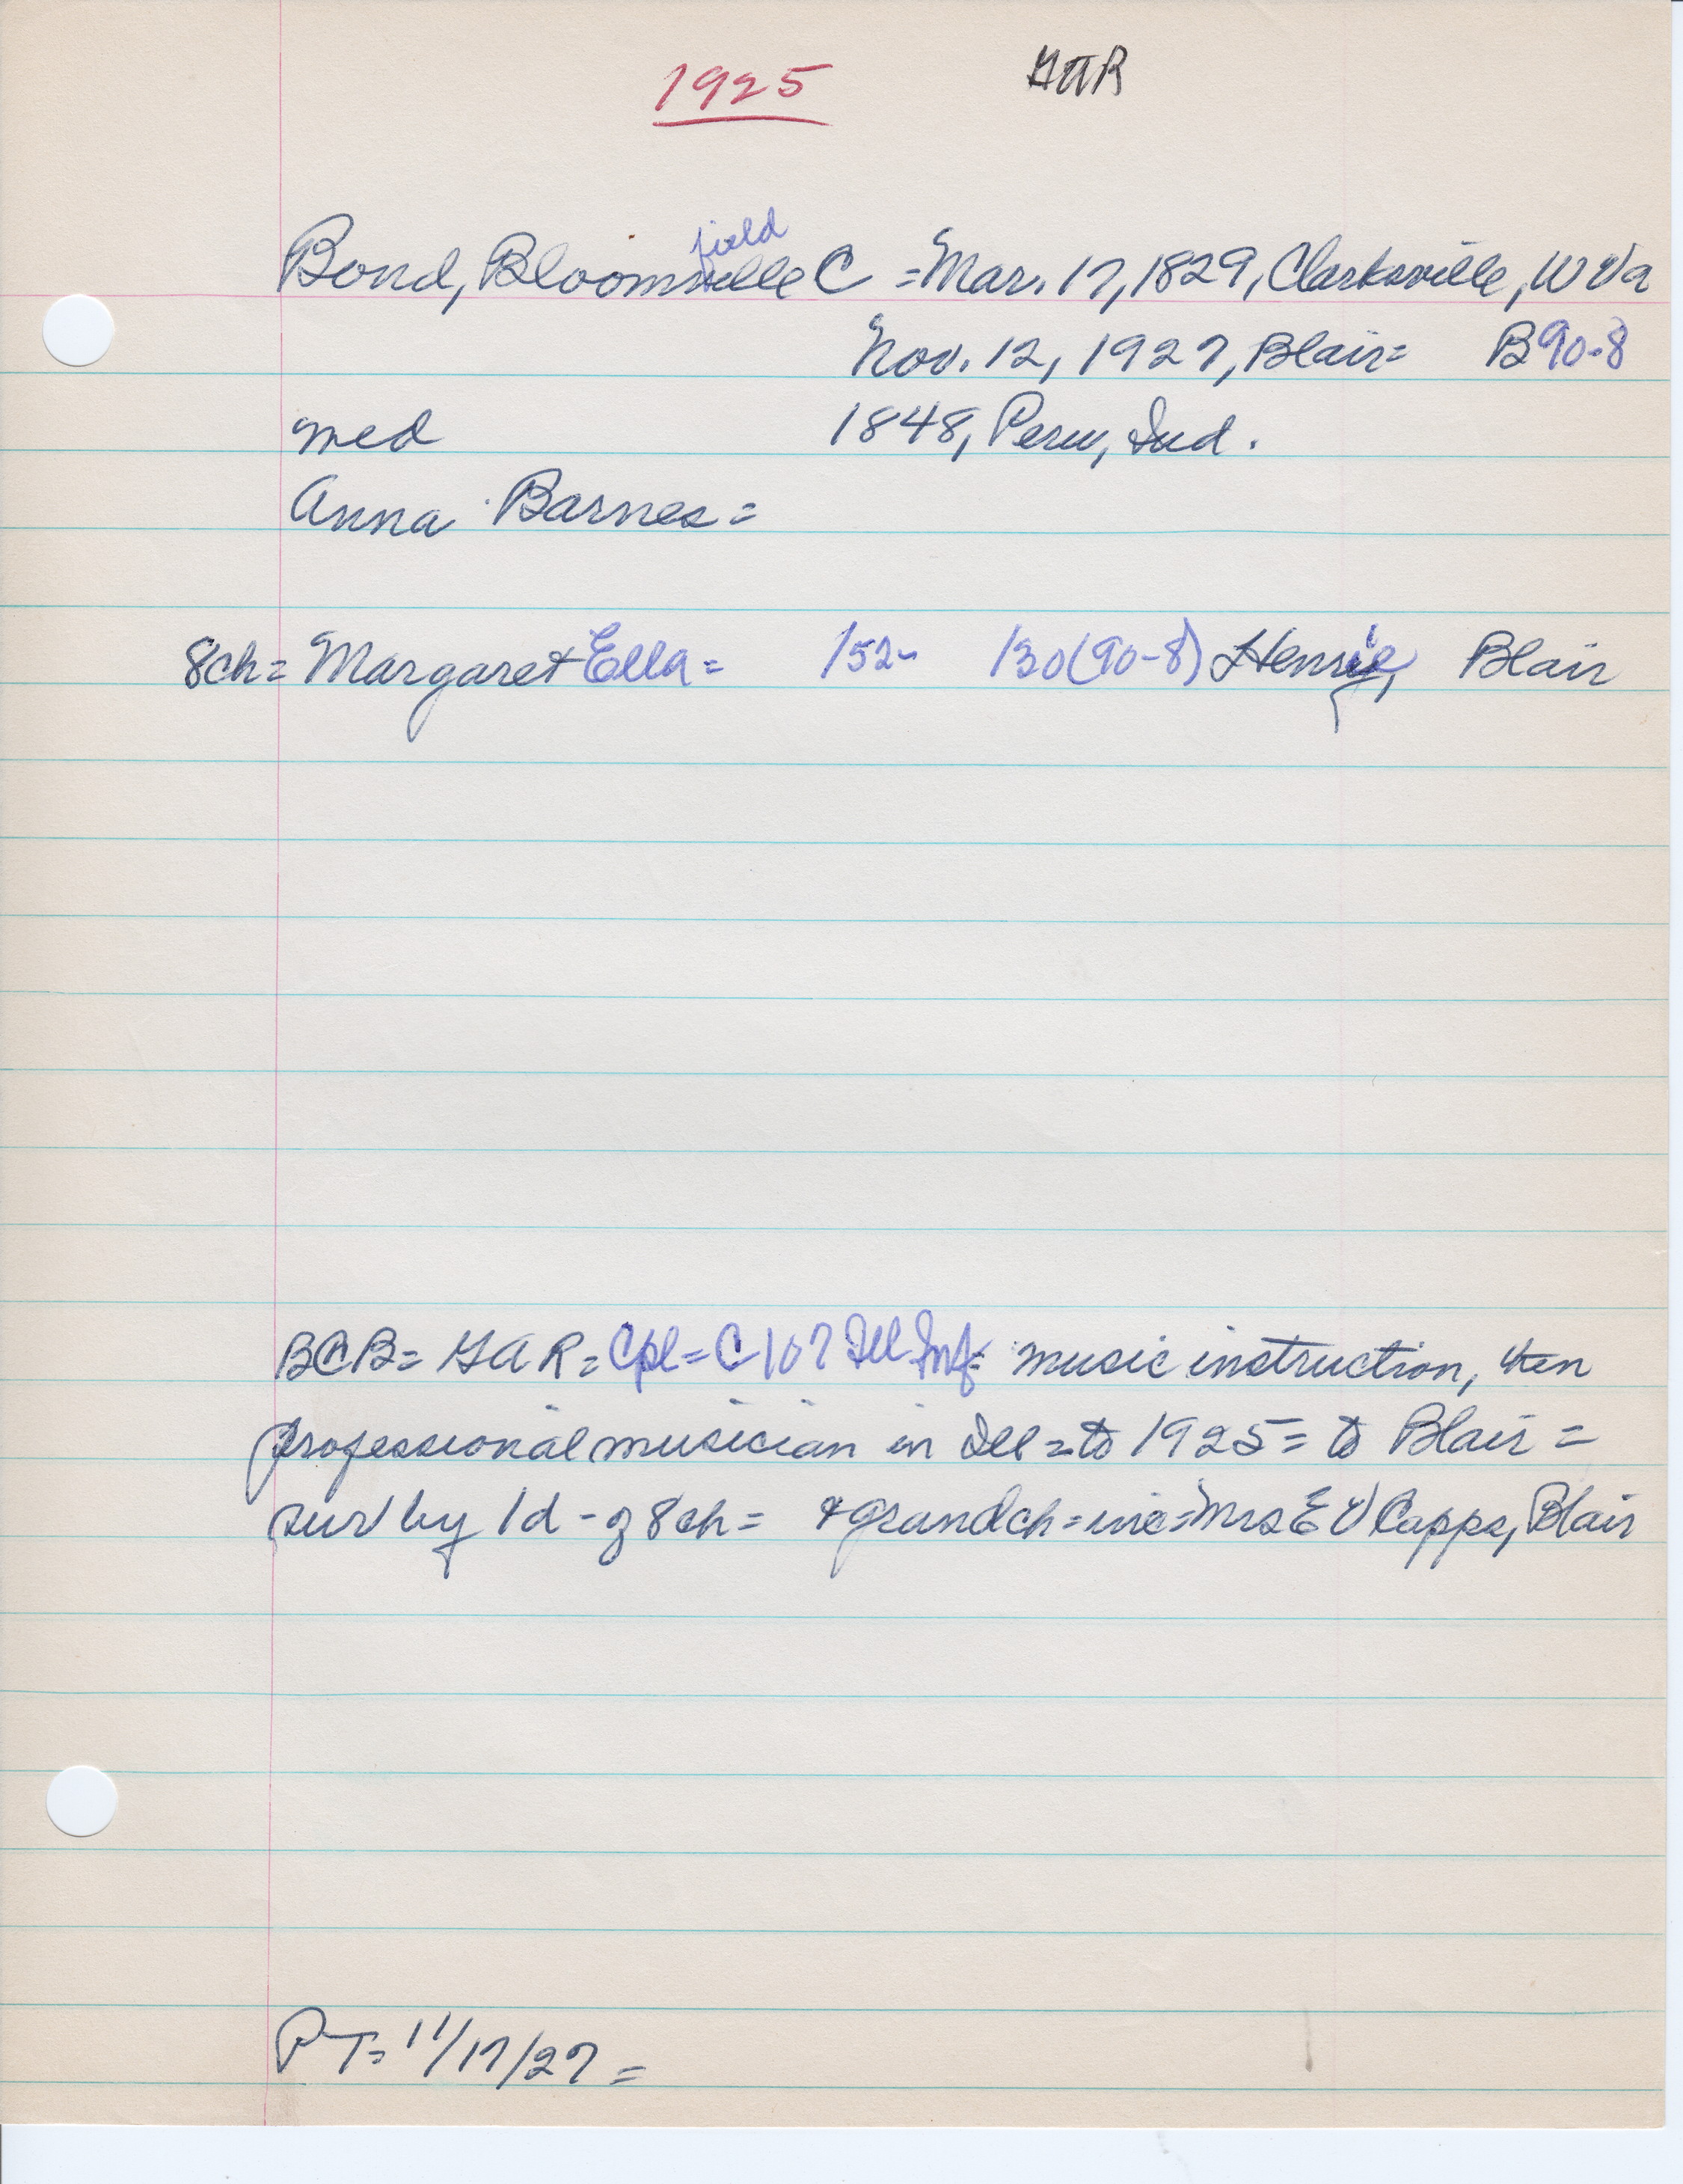 1925 GAR
field
Bond, Bloomville C = Mar. 17, 1829, Clarksville, W Va
Nov. 12, 1927, Blair = B90-8
med 1848, Peru, Ind.
Anna Barnes =
8ch = Margaret Ella = 152- 130(90-8) Henrie, Blair
BCB = GAR = Cpl = C 107 Ill Inf = music instruction, then
professional musician in Ill = to 1925 = to Blair =
sur by 1d - of 8ch = + grandch = inc = Mrs E V Capps, Blair
PT = 11/17/27 =